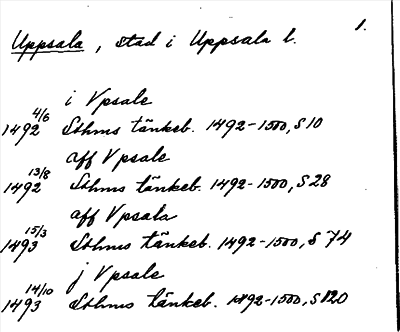 1.
Uppsala, stad i Uppsala l.
i Vpsale
1492 4/6 Sthms tänkeb. 1492-1500, S 10
aff Vpsale
1492 13/8 Sthms tänkeb. 1492-1500, S 28
aff Vpsala
1493 15/3 Sthms tänkeb. 1492-1500, S 74
j Vpsale
1493 14/10 Sthms tänkeb. 1492-1500, S 120